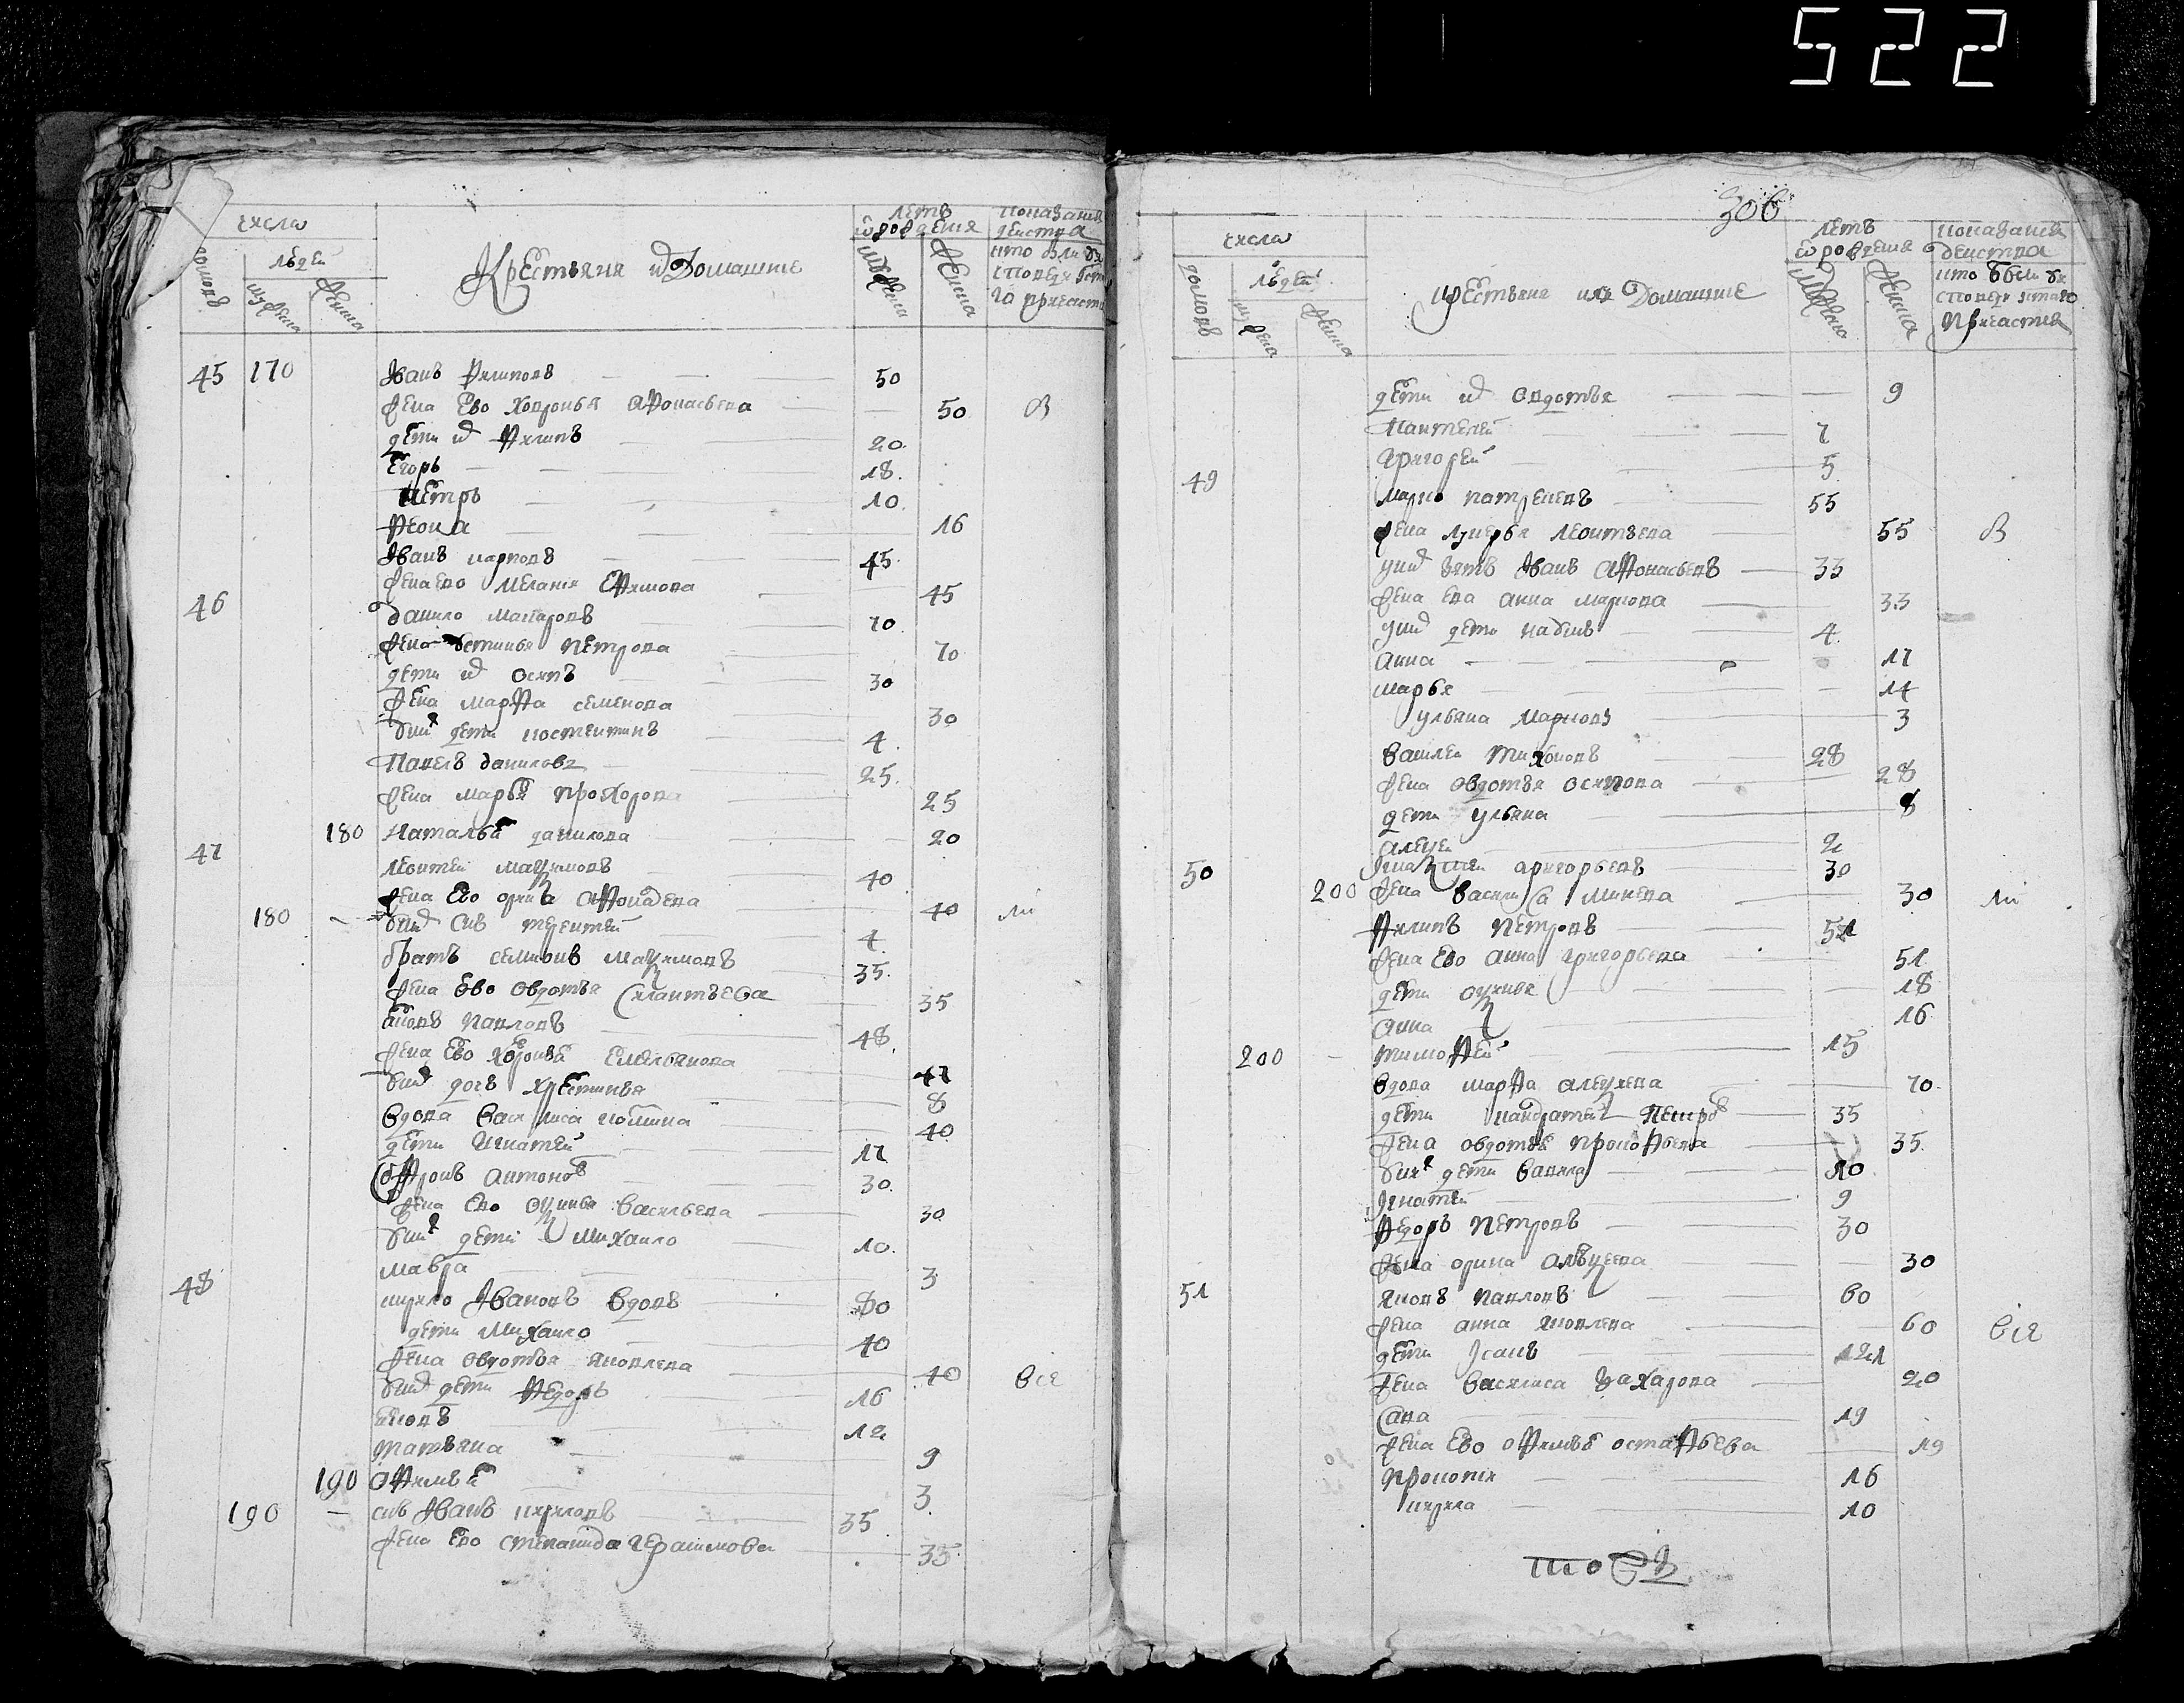 522
числа
домовъ
людеи
мужеска
женска
Крестьяня и Домашние
летъ
ѿ рождения
мужеска
женска
показания
действа
кто были у
исповеди
с͠таго причастия
45 170 Иванъ Филиповъ 50
Жена Ево Ховронья Афонасьева 50 В
дети их Филипъ 20
Егоръ 18
Петръ 10
Феона 16
Иванъ карповъ 45
Жена ево Мелания Ефимова 45
46 Данило Макаровъ 70
Жена Устинья Петрова 70
дети их Осипъ 30
Жена Марфа семенова 30
у них дети костентинъ 4
Павелъ Даниловъ 25
Жена Марья Прохорова 25
180 Наталья данилова 20
47 Леонтеи Маѯимовъ 40
Жена Ево орина 40 ли
180 у них сынъ терентеи 4
братъ Маѯимовъ 35
Жена Ево Овдотья Силантьева 35
Яковъ Павловъ 48
Жена Ево Ховронья Емельянова 47
у них дочь Хрестинья 8
Вдова Василиса 40
дети Игнатеи 17
Софронъ Антоновъ 30
Жена Ево Оѯинья Васильева 30
у них дети Михаило 10
Мавра 3
48 Кирило Ивановъ Вдовъ 80
дети Михаило 40
Жена Овдотья Яковлева 40 всѣ
у них дети Федоръ 16
Яковъ 12
Татьяна 9
190 Офимья 3
190 сынъ Иванъ Кириловъ 35
Жена Ево Степанида Герасимова 35
306
числа
домовъ
людеи
мужеска
женска
крестьяня их Домашние
летъ
ѿ рождения
мужеска
женска
показания
действа
кто были у
исповеди с͠таго
Причастия
дети их Овдотья 9
Пантелеи 7
Григореи 5
49 Марко 55
Жена Лукерья Леонтьева 55 В
у них зять Иванъ Афонасьевъ 33
Жена Ева Анна Маркова 33
у них дети 4
Анна 17
Марья 14
ульяна Маркова 3
Василеи Тихоновъ 28
Жена Овдотья Осипова 28
дети Ульяна 8
Алеѯеи 2
50 Григорьевъ 30
200 Жена Василиса Минеева 30 ли
Филипъ Петровъ 51
Жена Ево Анна Григорьева 51
дети Оѯинья 18
Анна 16
200 Тимофеи 15
Вдова Марфа Алеѯеева 70
дети кандратеи Петровъ 35
Жена Овдотья Прокофьева 35
у них дети Гаврила 10
Игнатеи 9
Федоръ Петровъ 30
Жена Орина Алеѯеева 30
51 Яковъ Павловъ 60
Жена Анна Яковлева 60 всѣ
дети Исаикъ 21
Жена Василиса Захарова 20
Сава 19
Жена Ево Офимья Остафьева 19
Прокопия 16
кирила 10